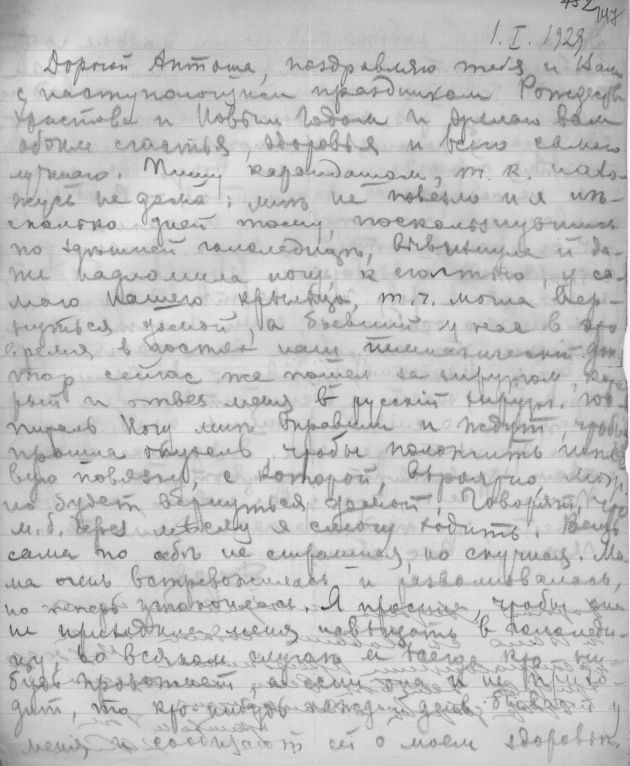 1. I. 1929
Дорогой Антоша, поздравляю тебя и
с наступающими праздниками Рождества
Христова и Новым Годом и желаю вам
обоим счастья, здоровья и всего самого
лучшего. Пишу карандашом, т. к. нахо-
жусь не дома: мне не повезло и я нѣ-
сколько дней тому, поскользнувшись
по здѣшней гололедицѣ, вывихнула и да-
же надломила ногу, к счастью, у са-
маго нашего крыльца, т. ч. могла вер-
нуться домой, а бывший у нас в это
время в гостях наш
тор сейчас же пошел за хирургом, кото-
рый и отвез меня в русский хирург. гос-
питаль. Ногу мнѣ вправили и ждут, чтобы
прошла опухоль, чтобы положить
вую повязку, с которой, вѣроятно, мож-
но будет вернуться домой. Говорят, что
м. б. через мѣсяц я смогу ходить. Вещь
сама по себѣ не страшная, но скучная. Ма-
ма очень встревожилась и разволновалась,
но теперь успокоилась. Я просила, чтобы она
не приходила меня навещать в гололеди-
цу, во всяком случаѣ ее всегда кто ни-
будь провожает, а если она и не прихо-
дит, то кто нибудь каждый день бывает у
меня и сообщают ей о моем здоровьи